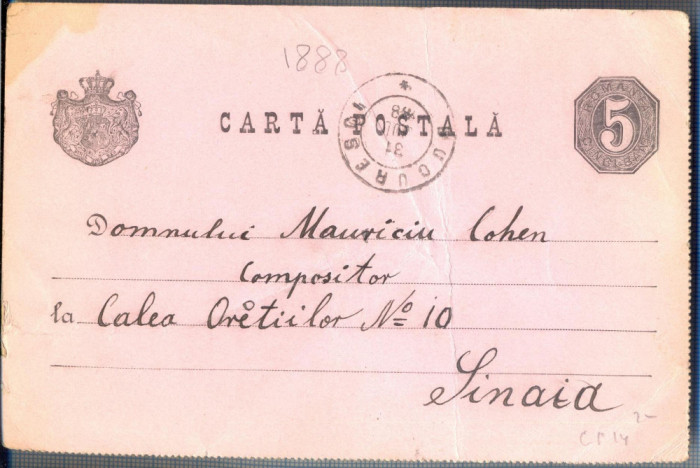 1888
CARTĂ POSTALĂ
BUCURESCI
31
88
ROMANIA
5
CINCI BANI
Domnului Mauriciu Cohen
Compositor
la Calea Orêtiilor No 10
Sinaia
CP 14